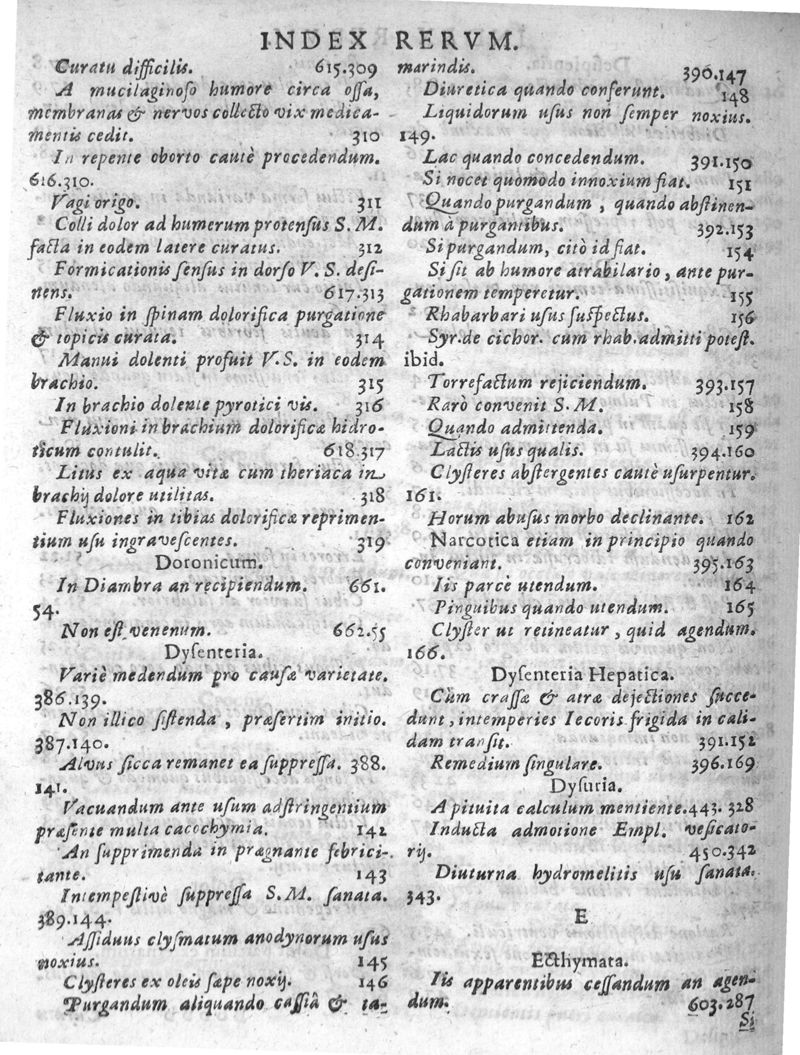 INDEX RERVM.
Curatu difficilis. 615.309
A mucilaginoso humore circa ossa,
membranas & nervos collecto vix medica-
mentis cedit. 310
In repente oborto cautè procedendum.
616.310.
Vagi origo. 311
Colli dolor ad humerum protensus S. M.
facta in eodem latere curatus. 312
Formicationis sensus in dorso V. S. desi-
nens. 617.313
Fluxio in spinam dolorifica purgatione
& topicis curata. 314
Manui dolenti profuit V.S. in eodem
brachio. 315
In brachio dolente pyrotici vis. 316
Fluxioni in brachium dolorificæ hidro-
ticum contulit. 618.317
Litus ex aqua vitæ cum theriaca in
brachij dolore utilitas. 318
Fluxiones in tibias dolorificæ reprimen-
tium usu ingravescentes. 319
Doronicum.
In Diambra an recipiendum. 661.
54.
Non est venenum. 662.55
Dysenteria.
Variè medendum pro causæ varietate.
386.139.
Non illico sistenda, præsertim initio.
387.140.
Alvus sicca remanet ea suppressa. 388.
141.
Vacuandum ante usum adstringentium
præsente multa cacochymia. 142
An supprimenda in prægnante febrici-
tante. 143
Intempestivè suppressa S.M. sanata.
389.144.
Assiduus clysmatum anodynorum usus
noxius. 145
Clysteres ex oleis sæpe noxij. 146
Purgandum aliquando cassiâ & ta-
marindis. 390.147
Diuretica quando conferunt. 148
Liquidorum usus non semper noxius.
149.
Lac quando concedendum. 391.150
Si nocet quomodo innoxium fiat. 151
Quando purgandum, quando abstinen-
dum à purgantibus. 392.153
Si purgandum, citò id fiat. 154
Si sit ab humore atrabilario, ante pur-
gationem temperetur. 155
Rhabarbari usus suspectus. 156
Syr. de cichor. cum rhab. admitti potest.
ibid.
Torrefactum rejiciendum. 393.157
Rarò convenit S. M. 158
Quando admittenda. 159
Lactis usus qualis. 394.160
Clysteres abstergentes cautè usurpentur.
161.
Horum abusus morbo declinante. 162
Narcotica etiam in principio quando
conveniant. 395.163
Iis parcè utendum. 164
Pinguibus quando utendum. 165
Clyster ut retineatur, quid agendum.
166.
Dysenteria Hepatica.
Cùm crassæ & atræ dejectiones succe-
dunt, intemperies Iecoris frigida in cali-
dam transit. 391.152
Remedium singulare. 396.169
Dysuria.
A pituita calculum mentiente. 443. 328
Inducta admotione Empl. vesicato-
rij. 450.342
Diuturna hydromelitis usu sanata.
343.
E
Ecthymata.
Iis apparentibus cessandum an agen-
dum. 603.287
Si